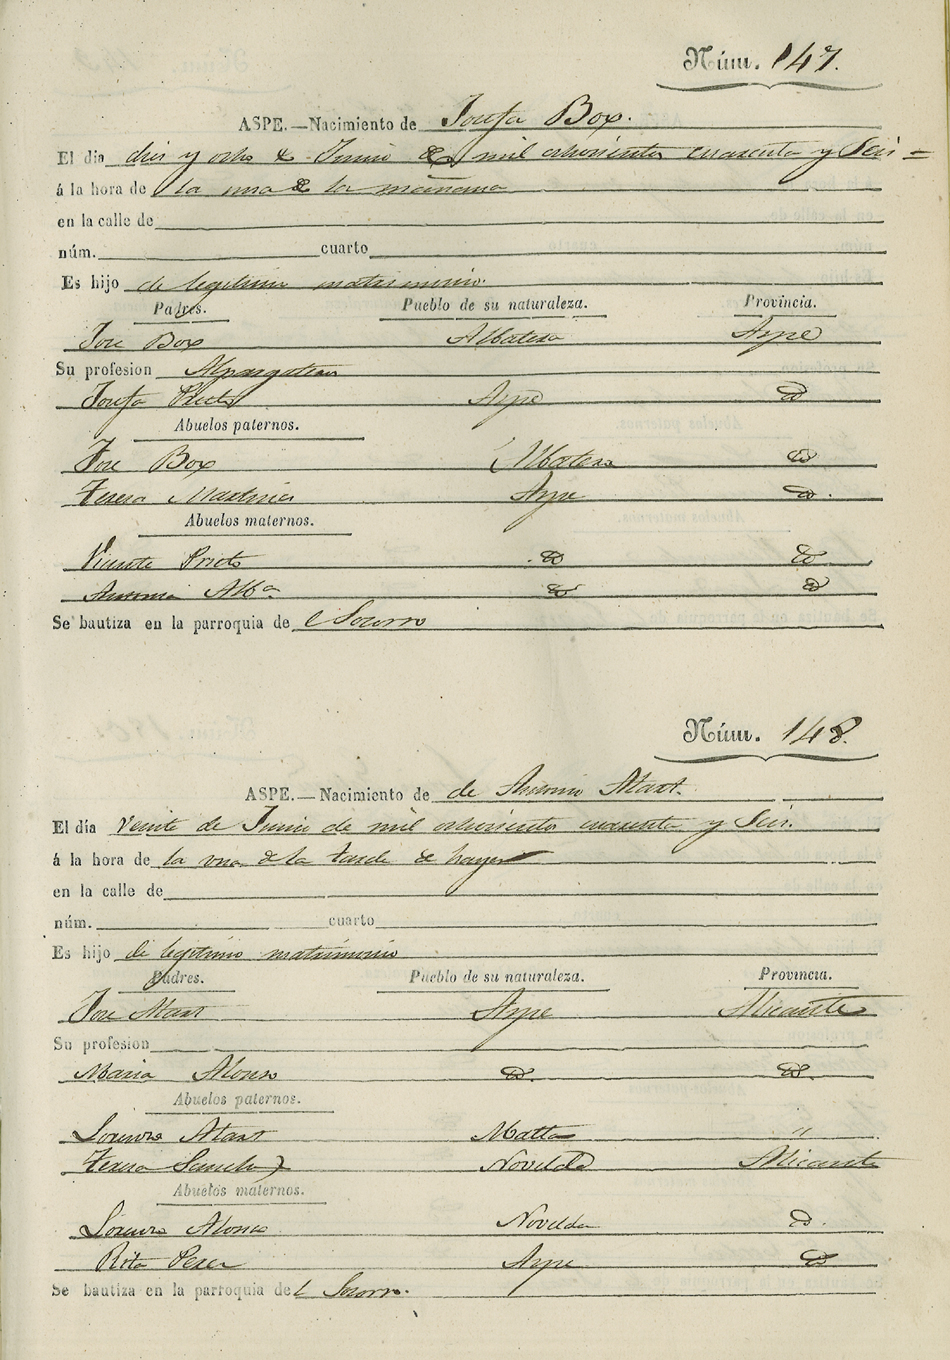 Núm. 147.
ASPE.—Nacimiento de Josefa Box.
El día diez y ocho de Junio de mil ochocientos cuarenta y Seis =
á la hora de la una de la mañana
en la calle de
núm. cuarto
Es hijo de legitimo matrimonio.
Padres. Pueblo de su naturaleza. Provincia.
Jose Box Albatera Aspe
Su profesion Alpargatero
Josefa Prieto Aspe Do
Abuelos paternos.
Jose Box Albatera Do
Teresa Martinez Aspe Do.
Abuelos maternos.
Vicente Prieto Do Do
Antonia Do Do
Se bautiza en la parroquia de l Socorro
Núm. 148.
ASPE.—Nacimiento de de Antonio Atart.
El día veinte de Junio de mil ochocientos cuarenta y Seis.
á la hora de la una de la tarde de hayer
en la calle de
núm. cuarto
Es hijo de legitimo matrimonio
Padres. Pueblo de su naturaleza. Provincia.
Jose Atart Aspe Alicante
Su profesion
Maria Alonso Do. Do.
Abuelos paternos.
Lorenzo Atart Malta "
Teresa Sanchez Novelda Alicante
Abuelos maternos.
Lorenzo Alonso Novelda Do.
Rita Perez Aspe Do
Se bautiza en la parroquia de l Socorro.